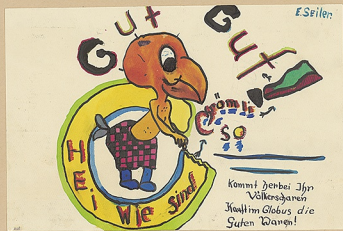 E. Seiler
Gut Gut!
Hei wie sind
so
Kommt herbei Ihr
Völkerscharen
Kauft im Globus die
Guten Waren!